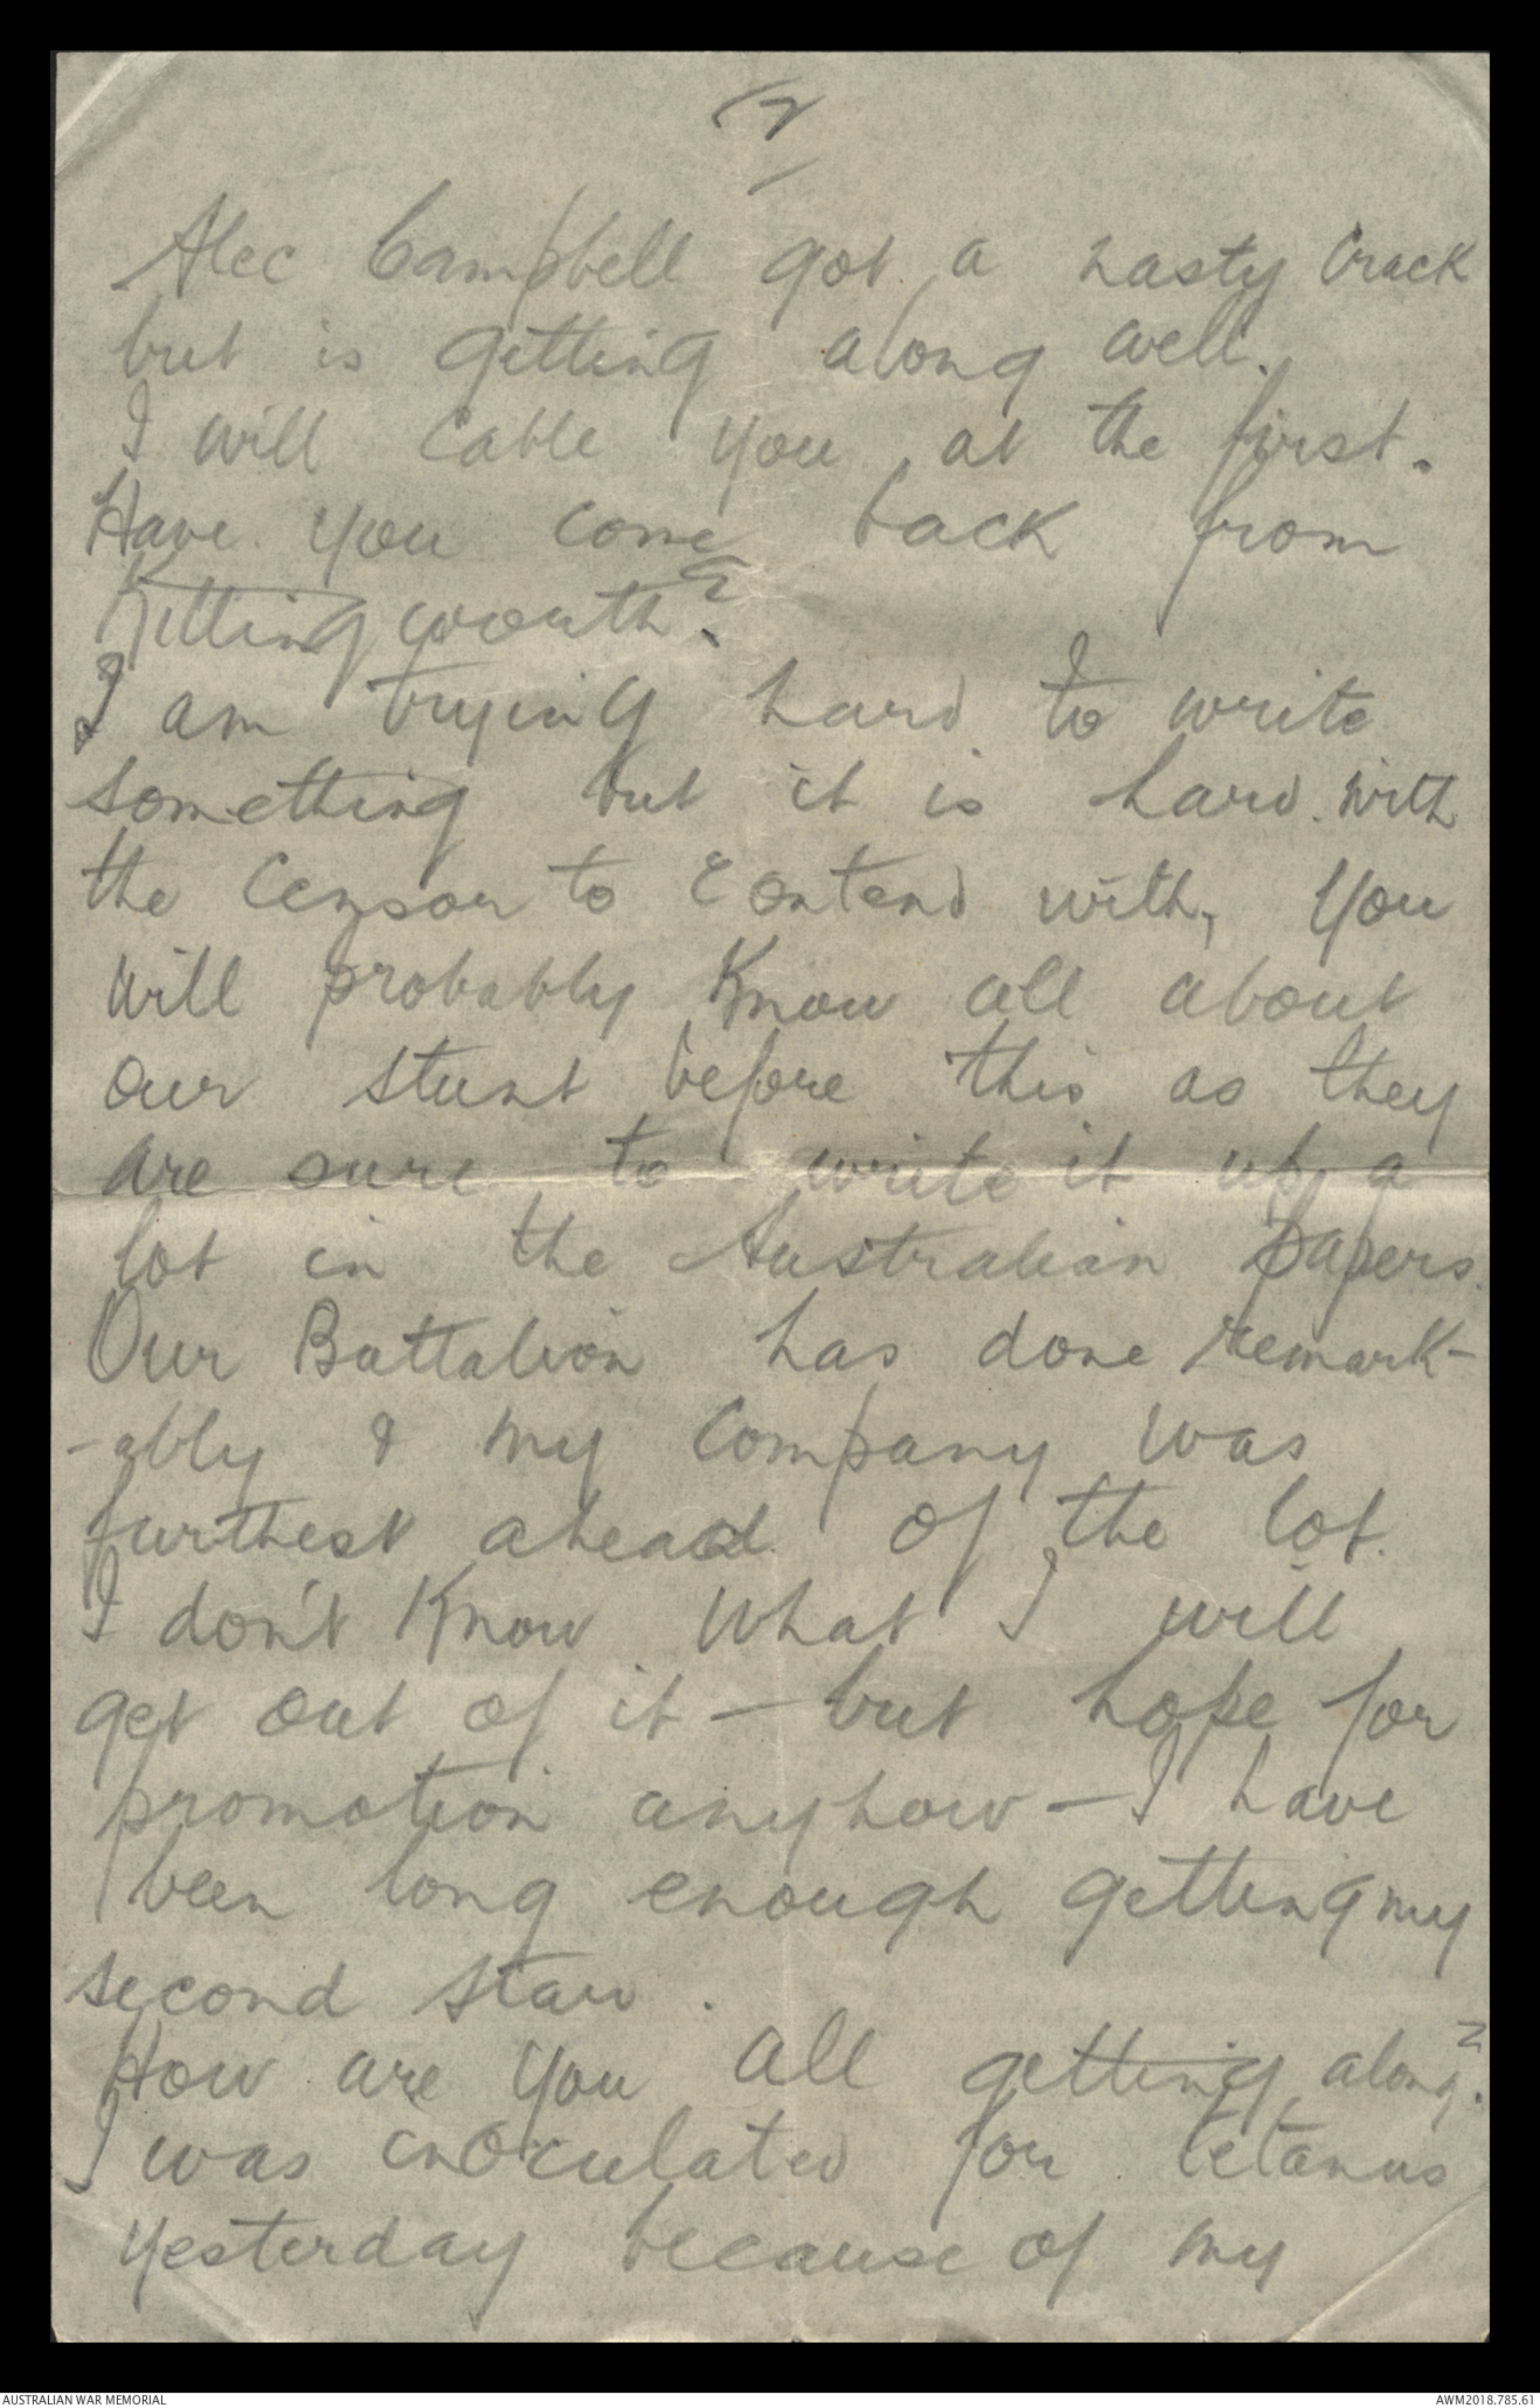 Alec Campbell got a nasty crack
but is getting along well.
I will cable you at the first.
Have you come back from
Killingworth?
I am trying hard to write
something but it is hard with
the Censor to contend with, you
will probably know all about
our stunt before this as they
are sure to write it up a
lot in the Australian papers.
Our Battalion has done remark-
-ably & my Company was
furthest ahead of the lot.
I don't know what I will
get out of it – but hope for
promotion anyhow – I have
been long enough getting my
second star.
How are you all getting along?
I was inoculated for tetanus
yesterday because of my
AUSTRALIAN WAR MEMORIAL
AWM2018.785.61